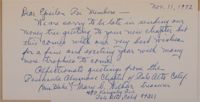 Nov. 11, 1972
Dear Epsilon Tau Members —
We're sorry to be late in sending our
money tree greeting to your new chapter but
this comes with our very best wishes
for a fine and exciting year with many
more trophies to come.
Affectionate greetings from the
Alumnae Chapter of Palo Alto, Calif.
Mary C.
Palo Alto, Calif. 94301